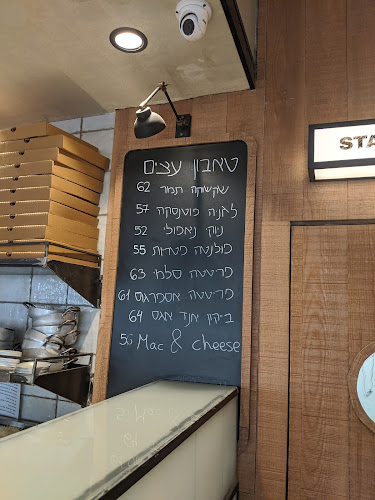 טאבון עצים
שקשוקה תמר 62
לזניה פוטנסקה 57
ניוקי נאפולי 52
פולנטה פטריות 55
פריטטה סלמון 63
פריטטה אספרגוס 61
בייקון אנד אגס 64
56 Mac & cheese
STA